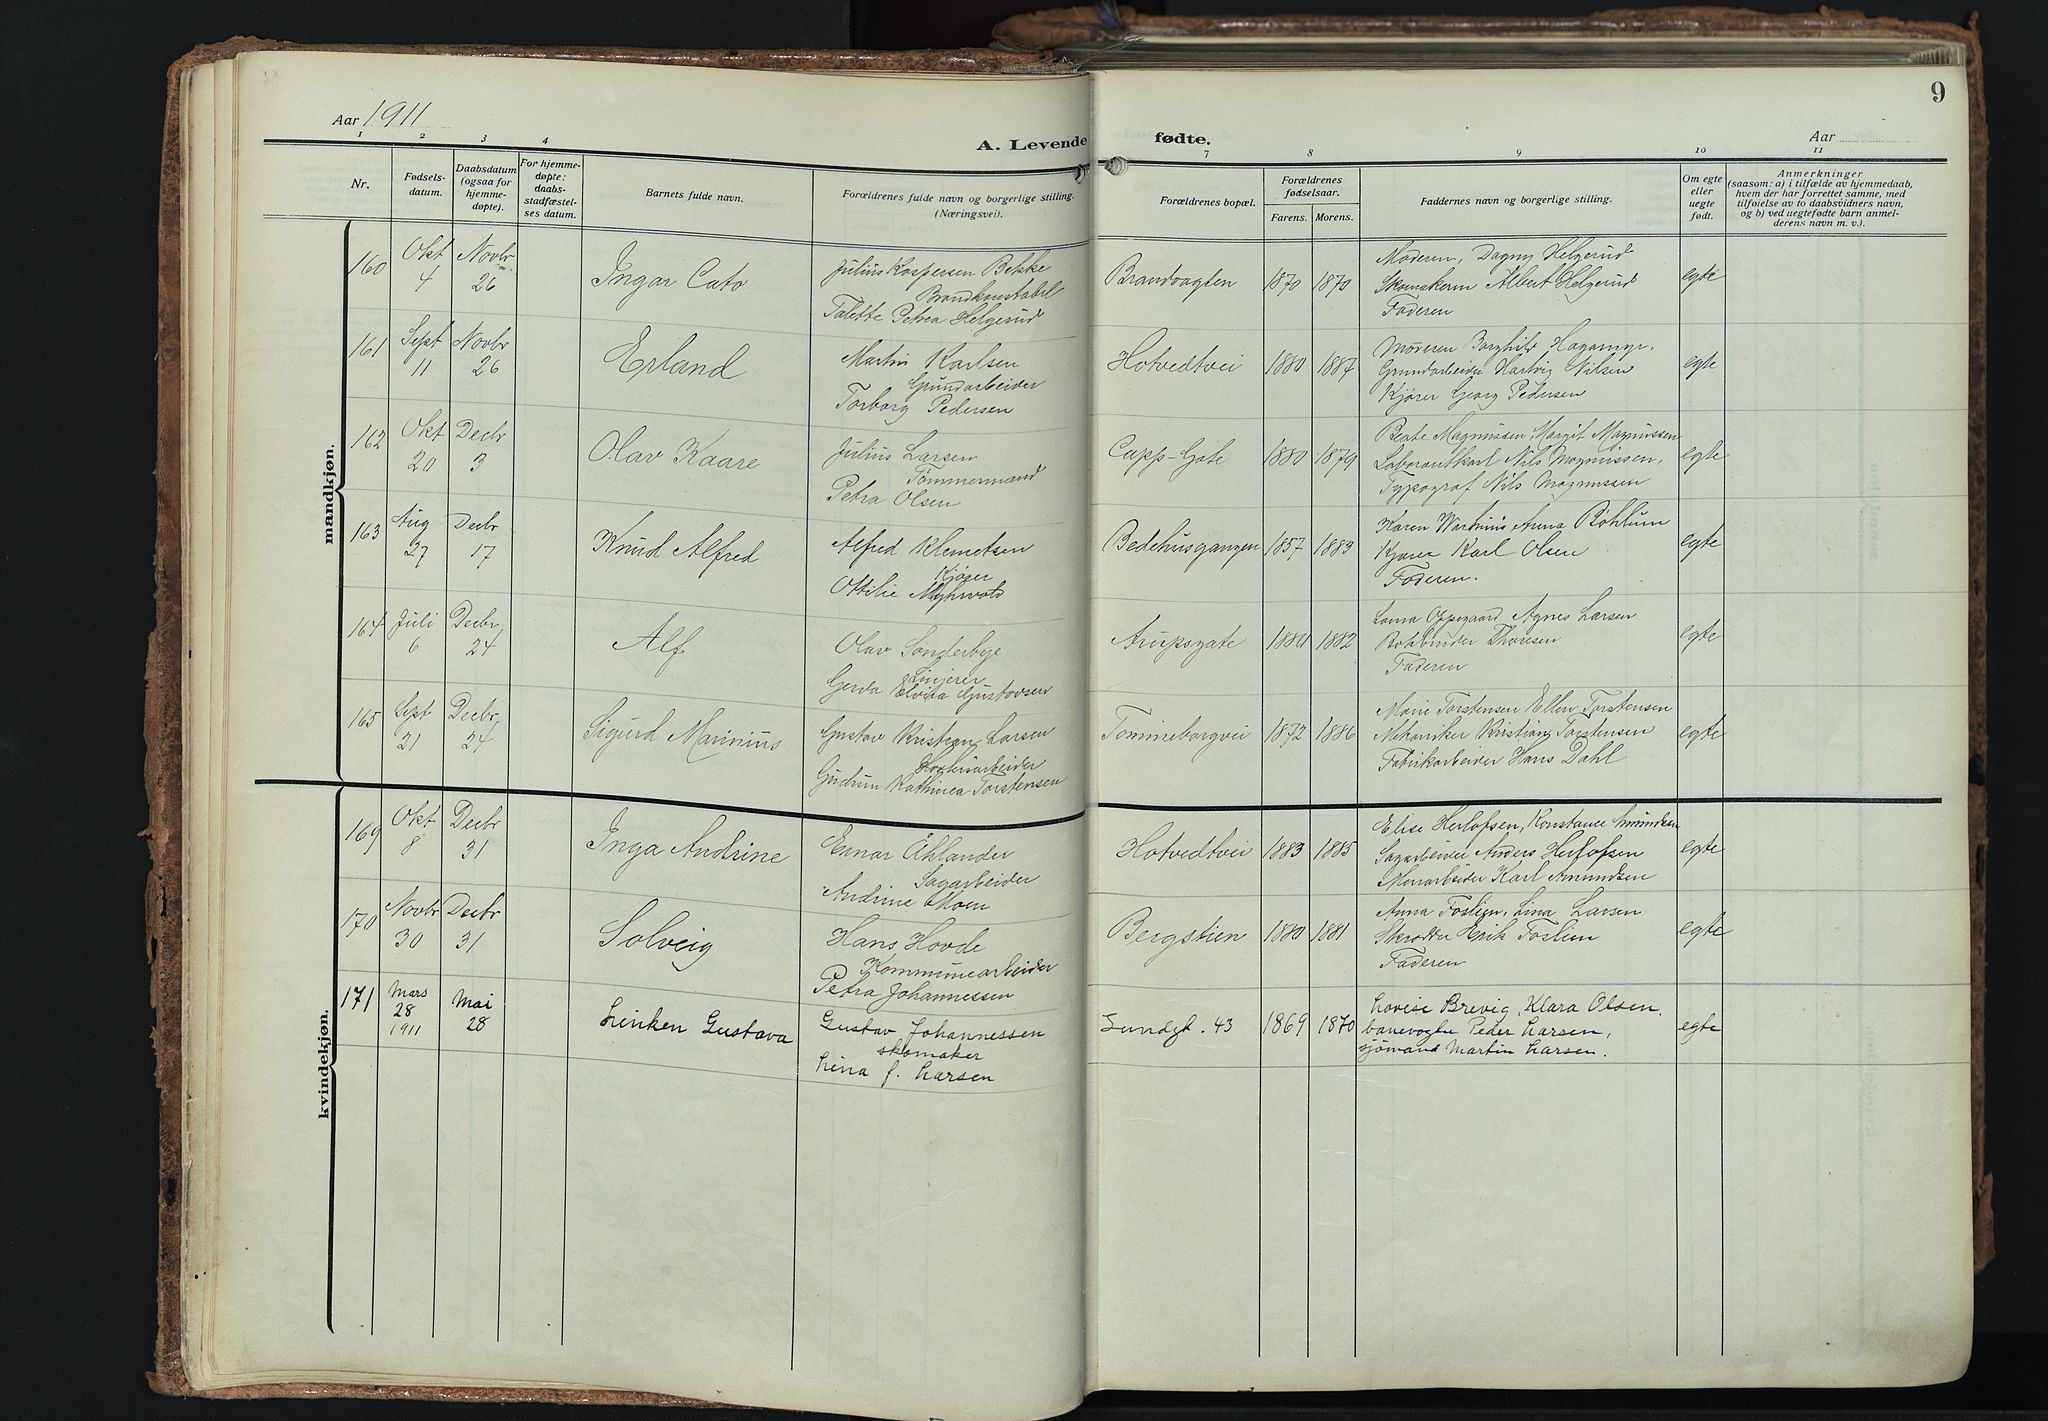 Aar 1911
A. Levende fødte.
Aar
9
1 2 3 4 7 8 9 10 11
Nr.
Fødsels-
datum.
Daabsdatum
(ogsaa for
hjemme-
døpte).
For hjemme-
døpte:
daabs-
stadfæstel-
ses datum.
Barnets fulde navn.
Forældrenes fulde navn og borgerlige stilling.
(Næringsvei).
Forældrenes bopæl.
Forældrenes
fødselsaar.
Farens. Morens.
Faddernes navn og borgerlige stilling.
Om egte
eller
uegte
født.
Anmerkninger
(saasom: a) i tilfælde av hjemmedaab,
hvem der har forrettet samme, med
tilføielse av to daabsvidners navn,
og b) ved uegtefødte barn anmel-
derens navn m. v.).
mandkjøn.
160 Okt 4 Novbr 26 Ingar Cato
Julius Kaspersen Betske
Brandkonstabel
Talette Petrea Helgerud
Brandvagten 1870 1870
Moderen, Dagny Helgerud
Albert Helgerud
Faderen
egte
161 Sept 11 Novbr 26 Erland
Martin Karlsen
Grundarbeider
Torborg Pedersen
Hotvedtvei 1880 1887
Moderen Borghild Hagamyr.
Grundarbeider Hartvig Nilsen
Kjører Georg Pedersen
egte
162 Okt 20 Decbr 3 Olav Kaare
Julius Larsen
Tømmermand
Petra Olsen
Capp-Gate 1880 1879
Beate Magnussen, Margit Magnussen
Laborantkarl Nils Magnussen,
Typograf Nils Magnussen
egte
163 Aug 27 Decbr 17 Knud Alfred
Alfred Klemetsen
Kjører
Ottilie Myhrvold
Bedehusgangen 1857 1883
Karen Anna Bøhlum
Kjører Karl Olsen
Faderen.
egte
164 Juli 6 Decbr 24 Alf
Olav Sønderbye
Linjerer
Gerda Elvira Gustavsen
Arupsgate 1880 1882
Oppegaard Agnes Larsen
Bokbinder Thoresen
Faderen
egte
165 Sept 21 Decbr 24 Sigurd Marinius
Gustav Kristian Larsen
Gudrun Kathinca Torstensen
Tømmeborgvei 1872 1886
Marie Torstensen Ellen Torstensen
Mekaniker Kristian Torstensen
Fabrikarbeider Hans Dahl
egte
kvindekjøn.
169 Okt 8 Decbr 31 Inga Andrine
Einar Åhlander
Sagarbeider
Andrine Moen
Hotvedtvei 1883 1885
Elise Herlofsen, Konstance Amundsen
Sagarbeider Anders Herlofsen
Murarbeider Karl Amundsen
egte
170 Novbr 30 Decbr 31 Solveig
Hans Hovde
Kommunearbeider
Petra Johannessen
Bergstien 1880 1881
Anna Foslien, Lina Larsen
Skrædder Erik Foslien
Faderen
egte
171 Mars 28 1911 Mai 28 Linken Gustava
Gustav Johannessen
skomaker
Lina f. Larsen
Lundgt. 43 1869 1870
Lovise Brevig, Klara Olsen,
banevogter Peder Larsen,
sjømand Martin Larsen.
egte